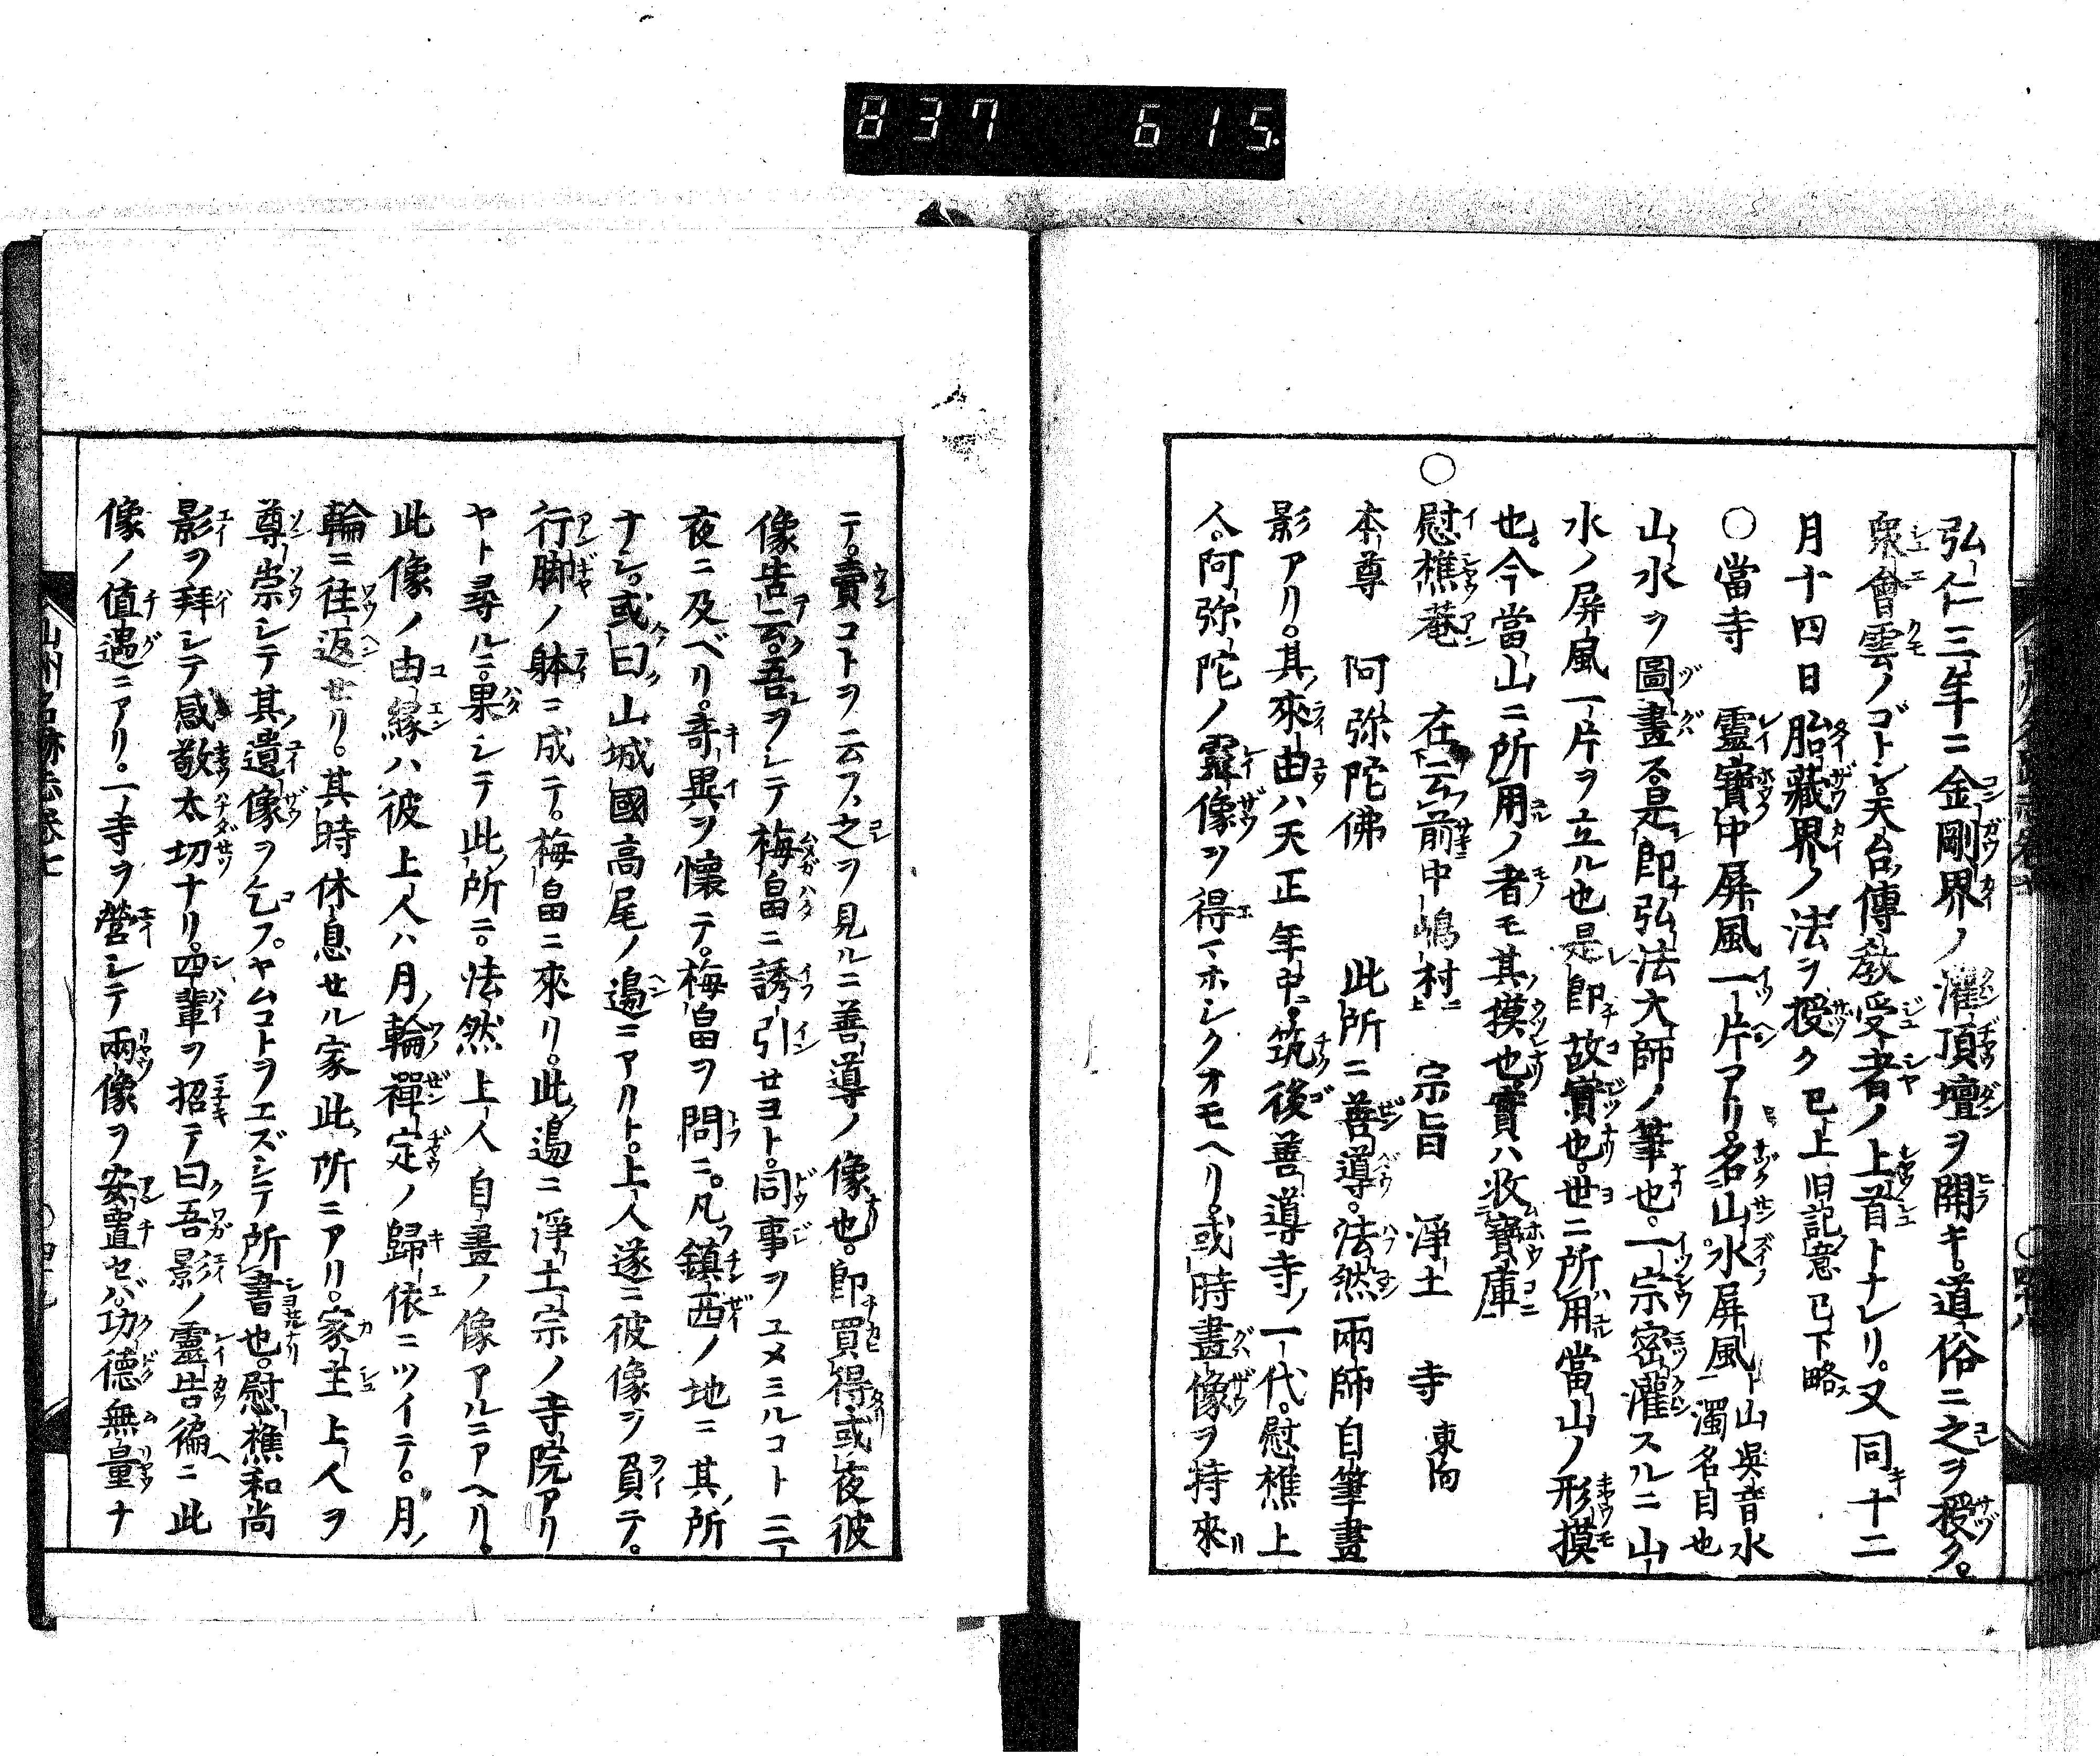 837 615.
弘仁三年ニ金剛界ノ灌頂壇ヲ開キ。道俗ニ之ヲ授ク。
衆會雲ノゴトシ。天台傳敎受者ノ上首トナレリ。又同十二
月十四日胎藏界ノ法ヲ授ク 已上旧記意已下略ス
○當寺 靈寶中屏風一片アリ。名山水屏風 山呉音水濁名目也
山水ヲ圖畫ス。是即弘法大師ノ筆也。一宗密灌スルニ山
水ノ屏風一片ヲ立ル也是即故實也。世ニ所用當山ノ形摸
也。今當山ニ所用ノ者モ其摸也實ハ收寶庫
○慰樵菴 在云前中嶋村 宗旨 淨土 寺 東向
本尊 阿弥陀佛 此所ニ善導。法然兩師自筆畫
影アリ。其來由ハ天正年中。筑後善導寺ノ一代。慰樵上
人。阿弥陀ノ靈像ヲ得マホシクオモヘリ。或時畫像ヲ持來
テ。賣コトヲ云フ、之ヲ見ルニ善導ノ像也。即買得或夜彼
像告云。吾ヲシテ梅畠ニ誘引セヨト。同事ヲユメミルコト三
夜ニ及ベリ。奇異ヲ懷テ。梅畠ヲ問ニ。凡鎭西ノ地ニ其所
ナシ。或曰山城國高尾ノ邉ニアリト。上人遂ニ彼像ヲ負テ。
行脚ノ躰ニ成テ。梅畠ニ來リ。此邉ニ淨土宗ノ寺院アリ
ヤト尋ルニ。果シテ此所ニ。法然上人自畫ノ像アルニアヘリ。
此像ノ由縁ハ彼上人ハ月輪禪定ノ歸依ニツイテ。月
輪ニ往返セリ。其時休息セル家此所ニアリ。家主上人ヲ
尊崇シテ其遺像ヲ乞フ。ヤムコトヲエズシテ所書也。慰樵和尚
影ヲ拜シテ感敬太切ナリ。四輩ヲ招テ曰吾影ノ靈告徧ニ此
像ノ値遇ニアリ。一寺ヲ營シテ兩像ヲ安置セバ。功德無量ナ
山州名跡志卷七